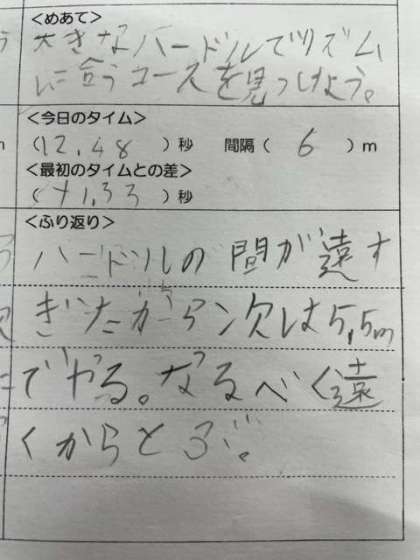 <めあて>
大きなハードルでリズム
に合うコースを見つけよう。
<今日のタイム>
(12.48)秒 間隔(6)m
<最初のタイムとの差>
(+1.33)秒
<ふり返り>
ハードルの間が遠す
ぎたから次は5.5m
でやる。なるべく遠
くからとぶ。